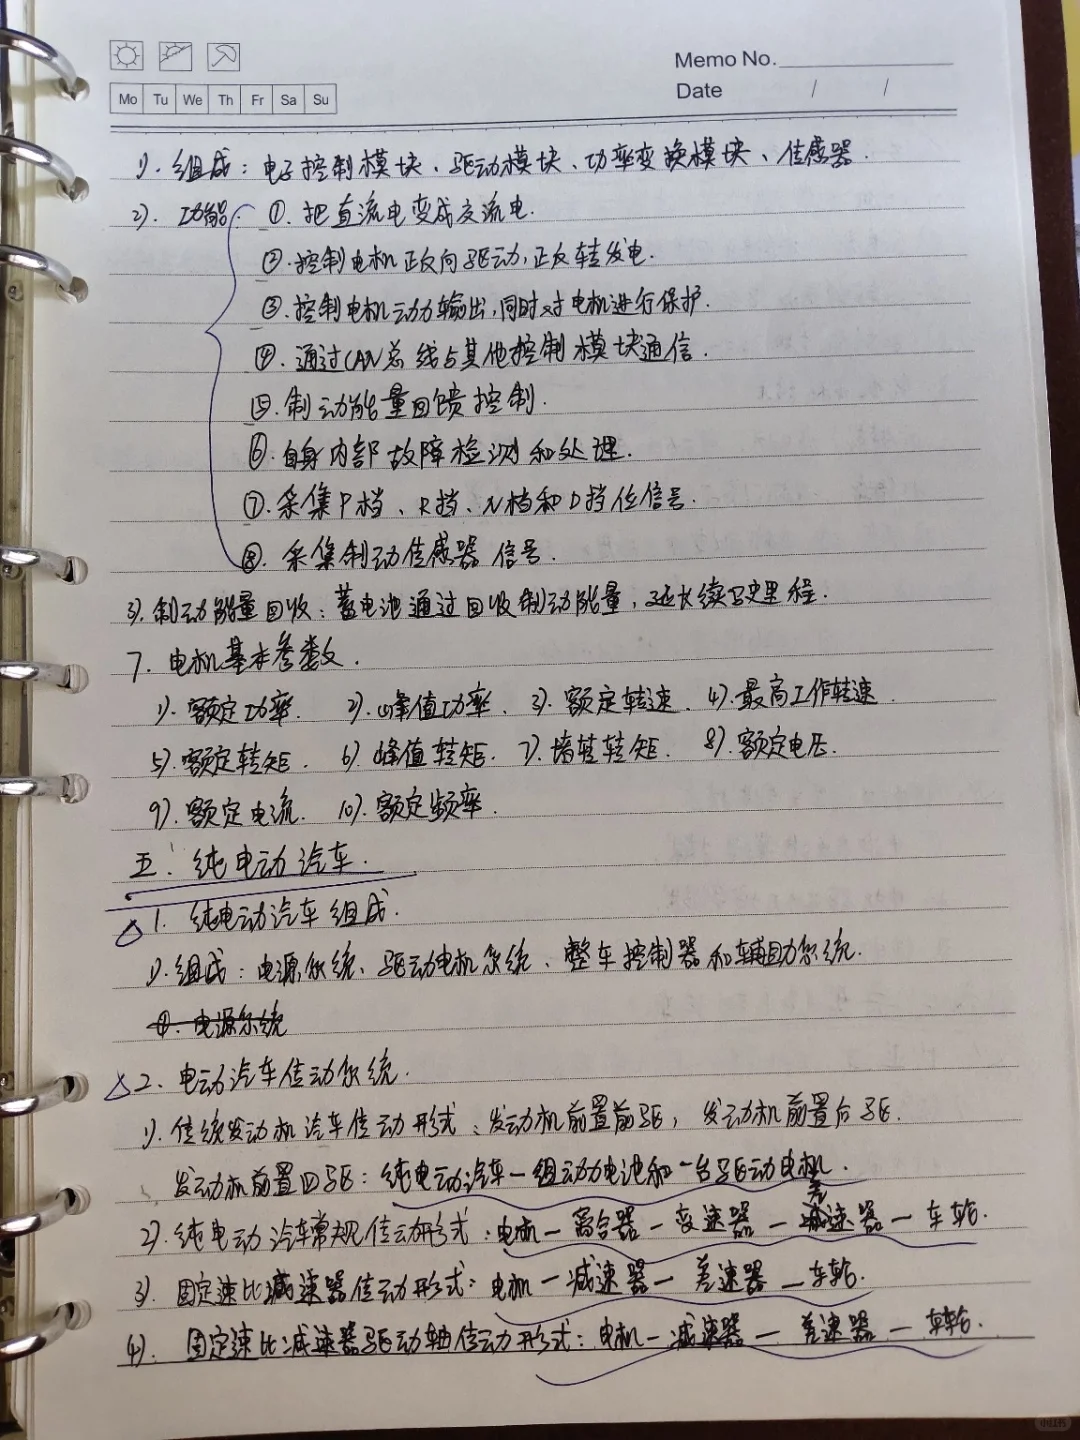 Memo No.
Mo Tu We Th Fr Sa Su
Date / /
1). 组成：电子控制模块、驱动模块、功率变换模块、传感器.
2). 功能. ①. 把直流电变成交流电.
②. 控制电机正反向驱动, 正反转发电.
③. 控制电机动力输出, 同时对电机进行保护.
④. 通过CAN总线与其他控制模块通信.
⑤. 制动能量回馈控制.
⑥. 自身内部故障检测和处理.
⑦. 采集P档、R挡、N档和D挡位信号.
⑧. 采集制动传感器信号.
3). 制动能量回收：蓄电池通过回收制动能量, 延长续驶里程.
7. 电机基本参数.
1). 额定功率. 2). 峰值功率. 3). 额定转速. 4). 最高工作转速.
5). 额定转矩. 6). 峰值转矩. 7). 堵转转矩. 8). 额定电压.
9). 额定电流. 10). 额定频率.
五. 纯电动汽车.
△ 1. 纯电动汽车组成.
1). 组成：电源系统、驱动电机系统、整车控制器和辅助系统.
①. 电源系统
△ 2. 电动汽车传动系统.
1). 传统发动机汽车传动形式：发动机前置前驱, 发动机前置后驱.
发动机前置四驱：纯电动汽车一组动力电池和一台驱动电机.
差
2). 纯电动汽车常规传动形式：电机—离合器—变速器—减速器—车轮.
3). 固定速比减速器传动形式：电机—减速器—差速器—车轮.
4). 固定速比减速器驱动轴传动形式：电机—减速器—差速器—车轮.